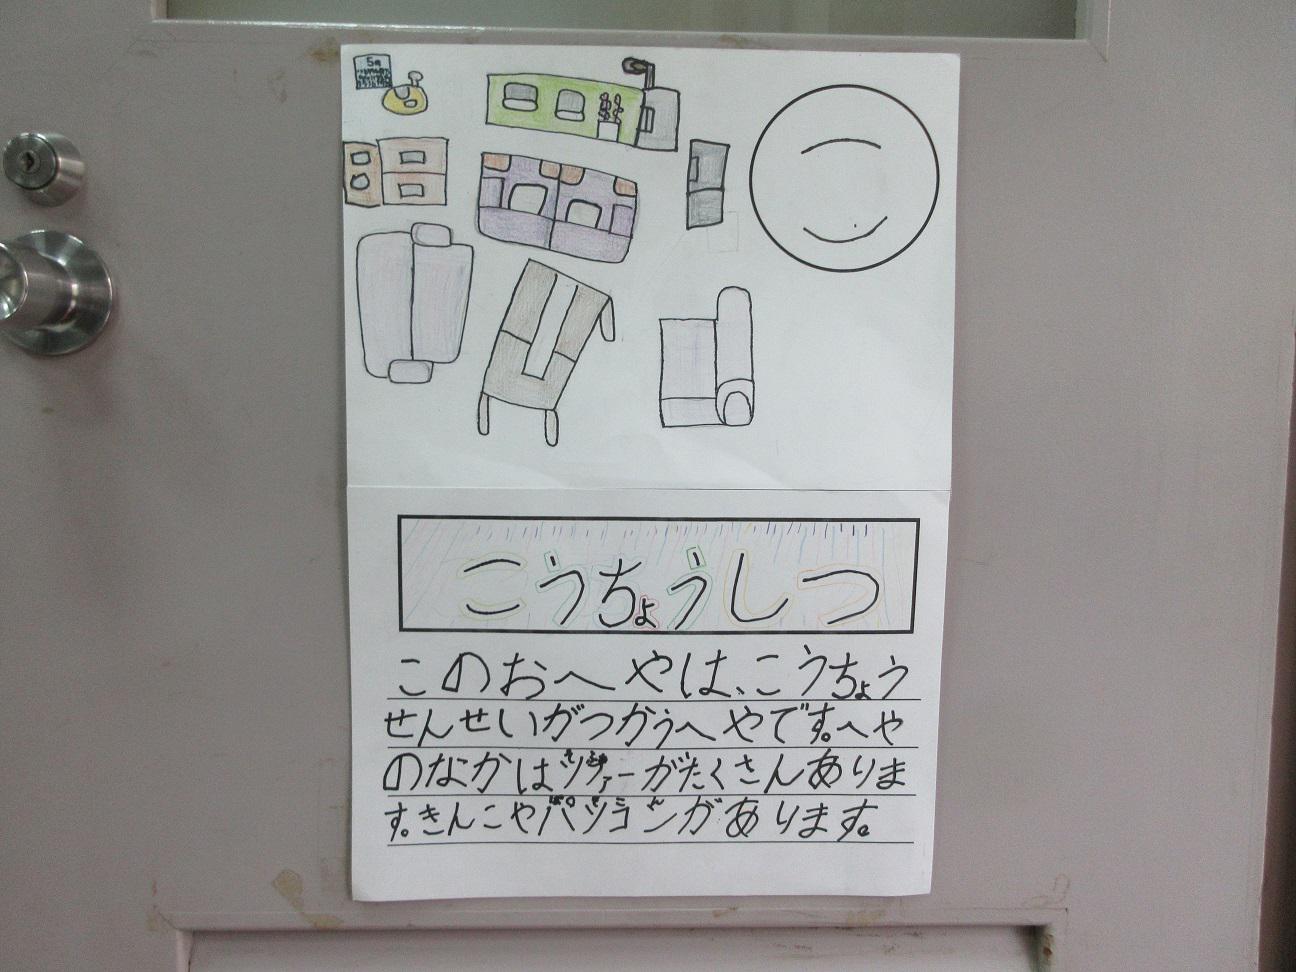 5月
こうちょうしつ
このおへやは、こうちょう
せんせいがつかうへやです。へや
のなかはソファーがたくさんありま
す。きんこやパソコンがあります。